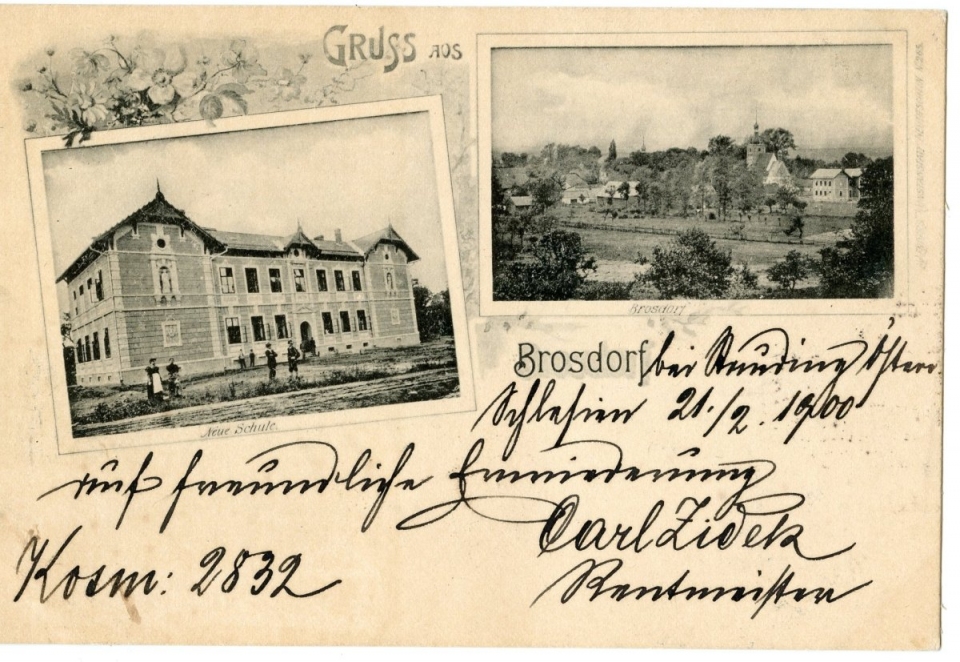 GRUSS AUS
Neue Schule.
Brosdorf
Brosdorf bei Stauding Österr.
Schlesien 21./2. 1900
auf freundliche Erwiederung
Carl Zidek
Rentmeister
Kosm: 2832